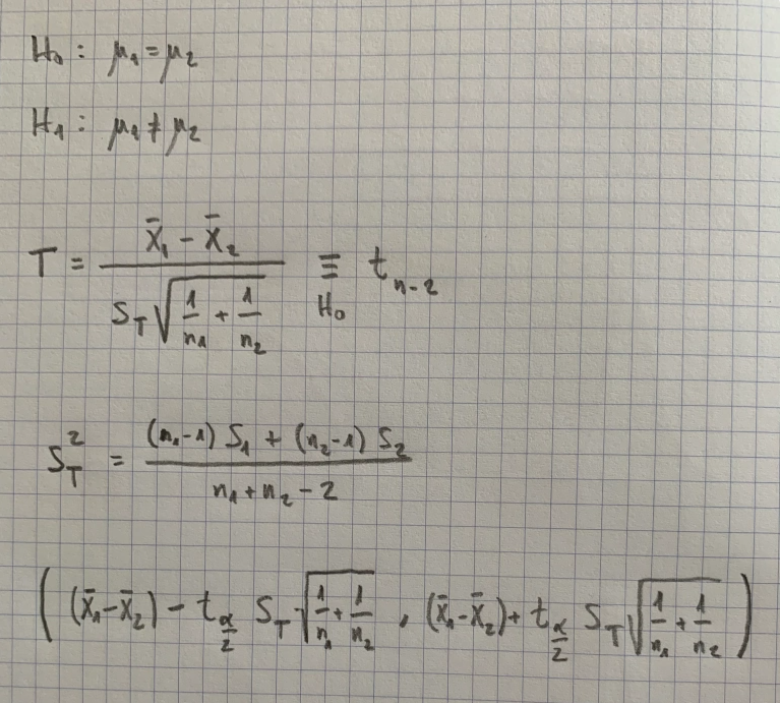 H₀: μ₁ = μ₂
H₁: μ₁ ≠ μ₂
T = (x̄₁ - x̄₂) / (S_T √(1/n₁ + 1/n₂)) ≡_{H₀} t_{n-2}
S_T² = ((n₁-1) S₁ + (n₂-1) S₂) / (n₁ + n₂ - 2)
((x̄₁-x̄₂) - t_{α/2} S_T √(1/n₁ + 1/n₂), (x̄₁-x̄₂) + t_{α/2} S_T √(1/n₁ + 1/n₂))